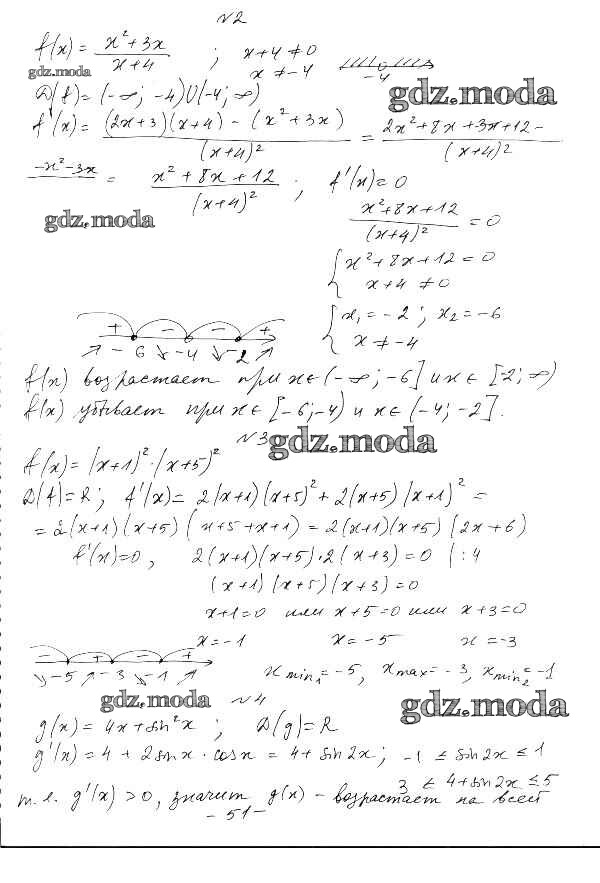 №2
f(x) = (x² + 3x)/(x + 4) ; x + 4 ≠ 0
gdz.moda x ≠ -4 -4
D(f) = (-∞; -4)∪(-4; ∞) gdz.moda
f'(x) = ((2x+3)(x+4) - (x² + 3x))/(x+4)² = (2x² + 8x + 3x + 12 -
-x² - 3x)/(x+4)² = (x² + 8x + 12)/(x+4)² ; f'(x) = 0
gdz.moda
(x² + 8x + 12)/(x+4)² = 0
{ x² + 8x + 12 = 0
x + 4 ≠ 0
{ x₁ = -2 ; x₂ = -6
x ≠ -4
+ - - +
↗ -6 ↘ -4 ↘ -2 ↗
f(x) возрастает при x ∈ (-∞; -6] и x ∈ [-2; ∞)
f(x) убывает при x ∈ [-6; -4) и x ∈ (-4; -2].
№3 gdz.moda
f(x) = (x+1)² · (x+5)²
D(f) = R ; f'(x) = 2(x+1)(x+5)² + 2(x+5)(x+1)² =
= 2(x+1)(x+5)(x+5+x+1) = 2(x+1)(x+5)(2x+6)
f'(x) = 0, 2(x+1)(x+5)·2(x+3) = 0 | : 4
(x+1)(x+5)(x+3) = 0
x+1 = 0 или x+5 = 0 или x+3 = 0
x = -1 x = -5 x = -3
- + - +
↘ -5 ↗ -3 ↘ -1 ↗
x min₁ = -5, x max = -3, x min₂ = -1
gdz.moda №4 gdz.moda
g(x) = 4x + sin²x ; D(g) = R
g'(x) = 4 + 2sin x · cos x = 4 + sin 2x ; -1 ≤ sin 2x ≤ 1
3 ≤ 4 + sin 2x ≤ 5
т. е. g'(x) > 0, значит g(x) - возрастает на всей
- 51 -